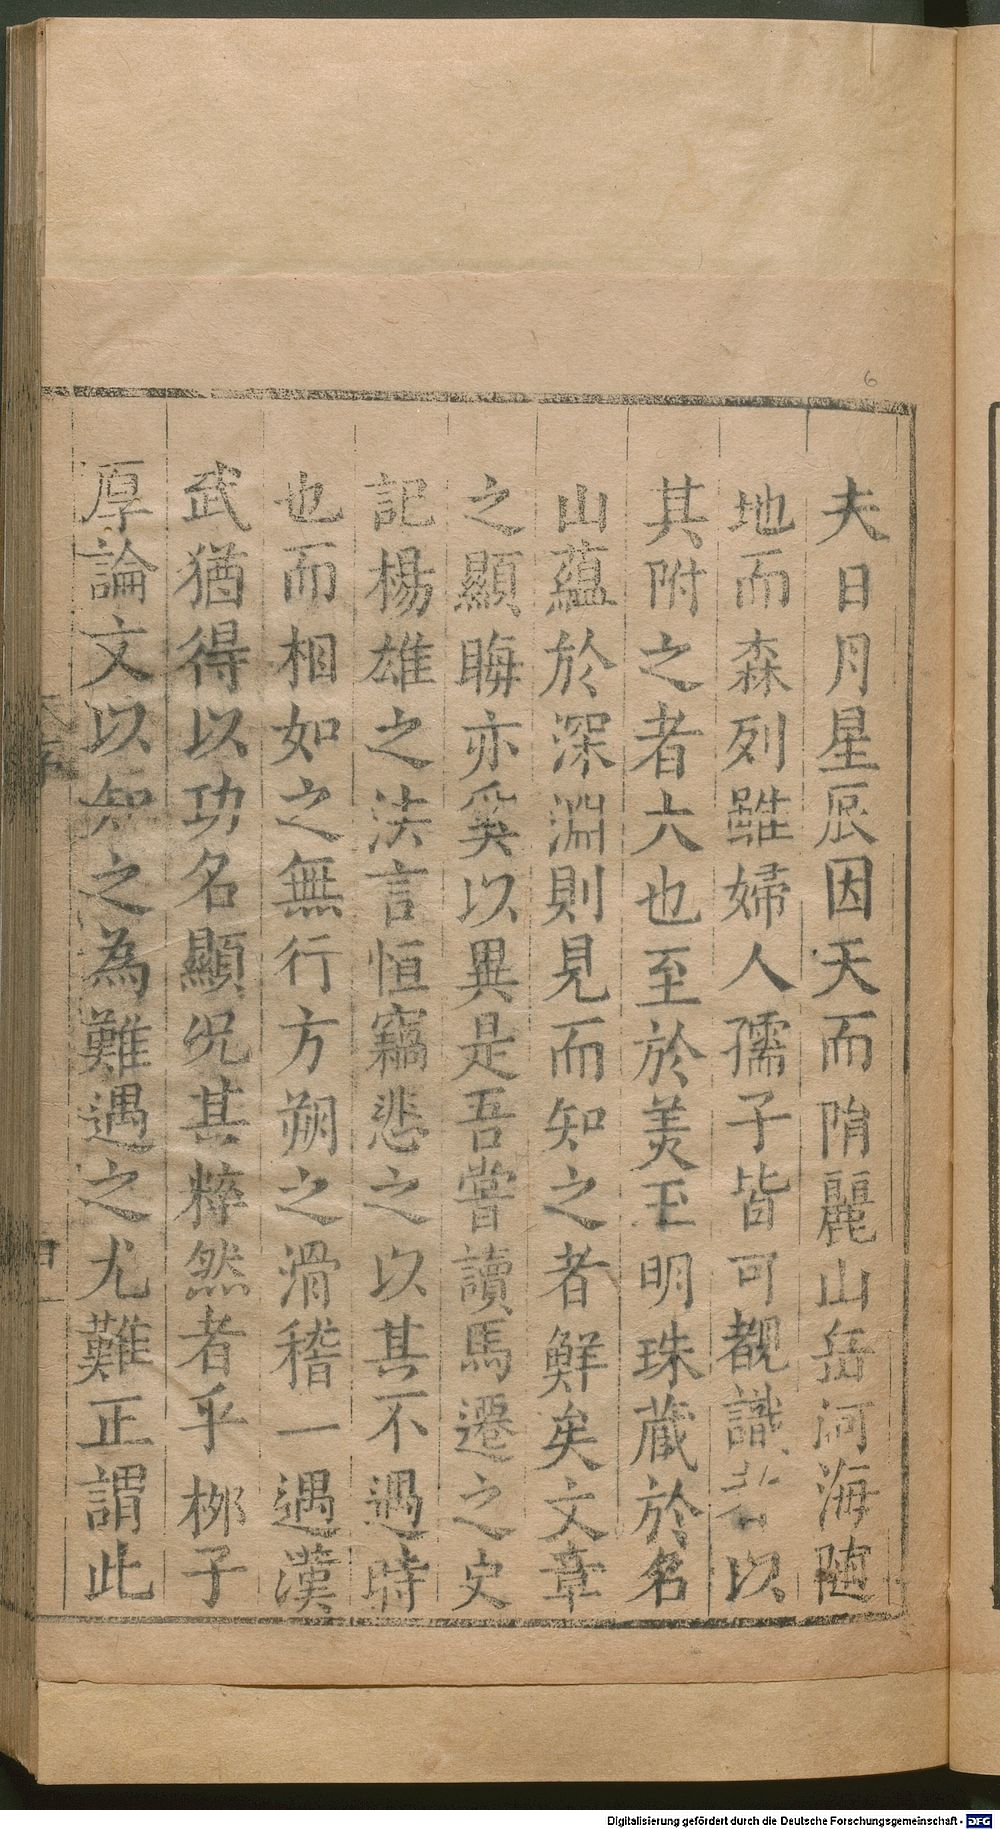 夫日月星辰因天而隋麗山岳河海随
地而森列雖婦人孺子皆可覩識者以
其附之者大也至於美玉明珠藏於名
山蘊於深淵則見而知之者鮮矣文章
之顯晦亦奚以異是吾嘗讀馬遷之史
記楊雄之法言恒竊悲之以其不遇時
也而相如之無行方朔之滑稽一遇漢
武猶得以功名顯况其粹然者乎栁子
厚論文以知之為難遇之尤難正謂此
6
Digitalisierung gefördert durch die Deutsche Forschungsgemeinschaft - DFG